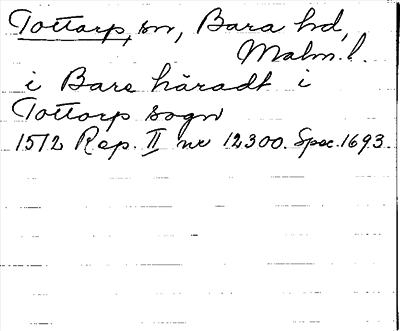 Tottarp, sn, Bara hd,
Malm. l.
i Bare häradt i
Tottorp sogn
1512 Rep. II nr 12300. Spec. 1693.